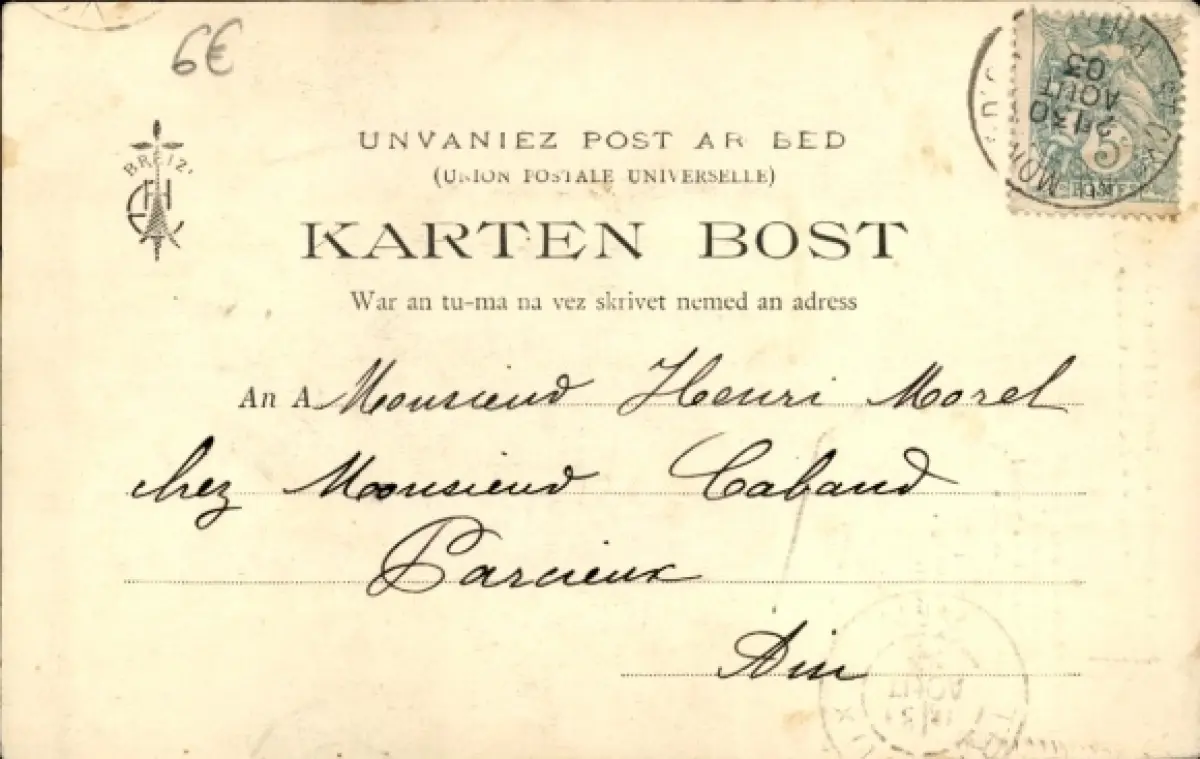 6€
BREIZ'
UNVANIEZ POST AR BED
(UNION POSTALE UNIVERSELLE)
KARTEN BOST
War an tu-ma na vez skrivet nemed an adress
An A Monsieur Henri Morel
chez Monsieur Caband
Parcieux
Ain
30
AOUT
03
5
POSTES
31
AOUT